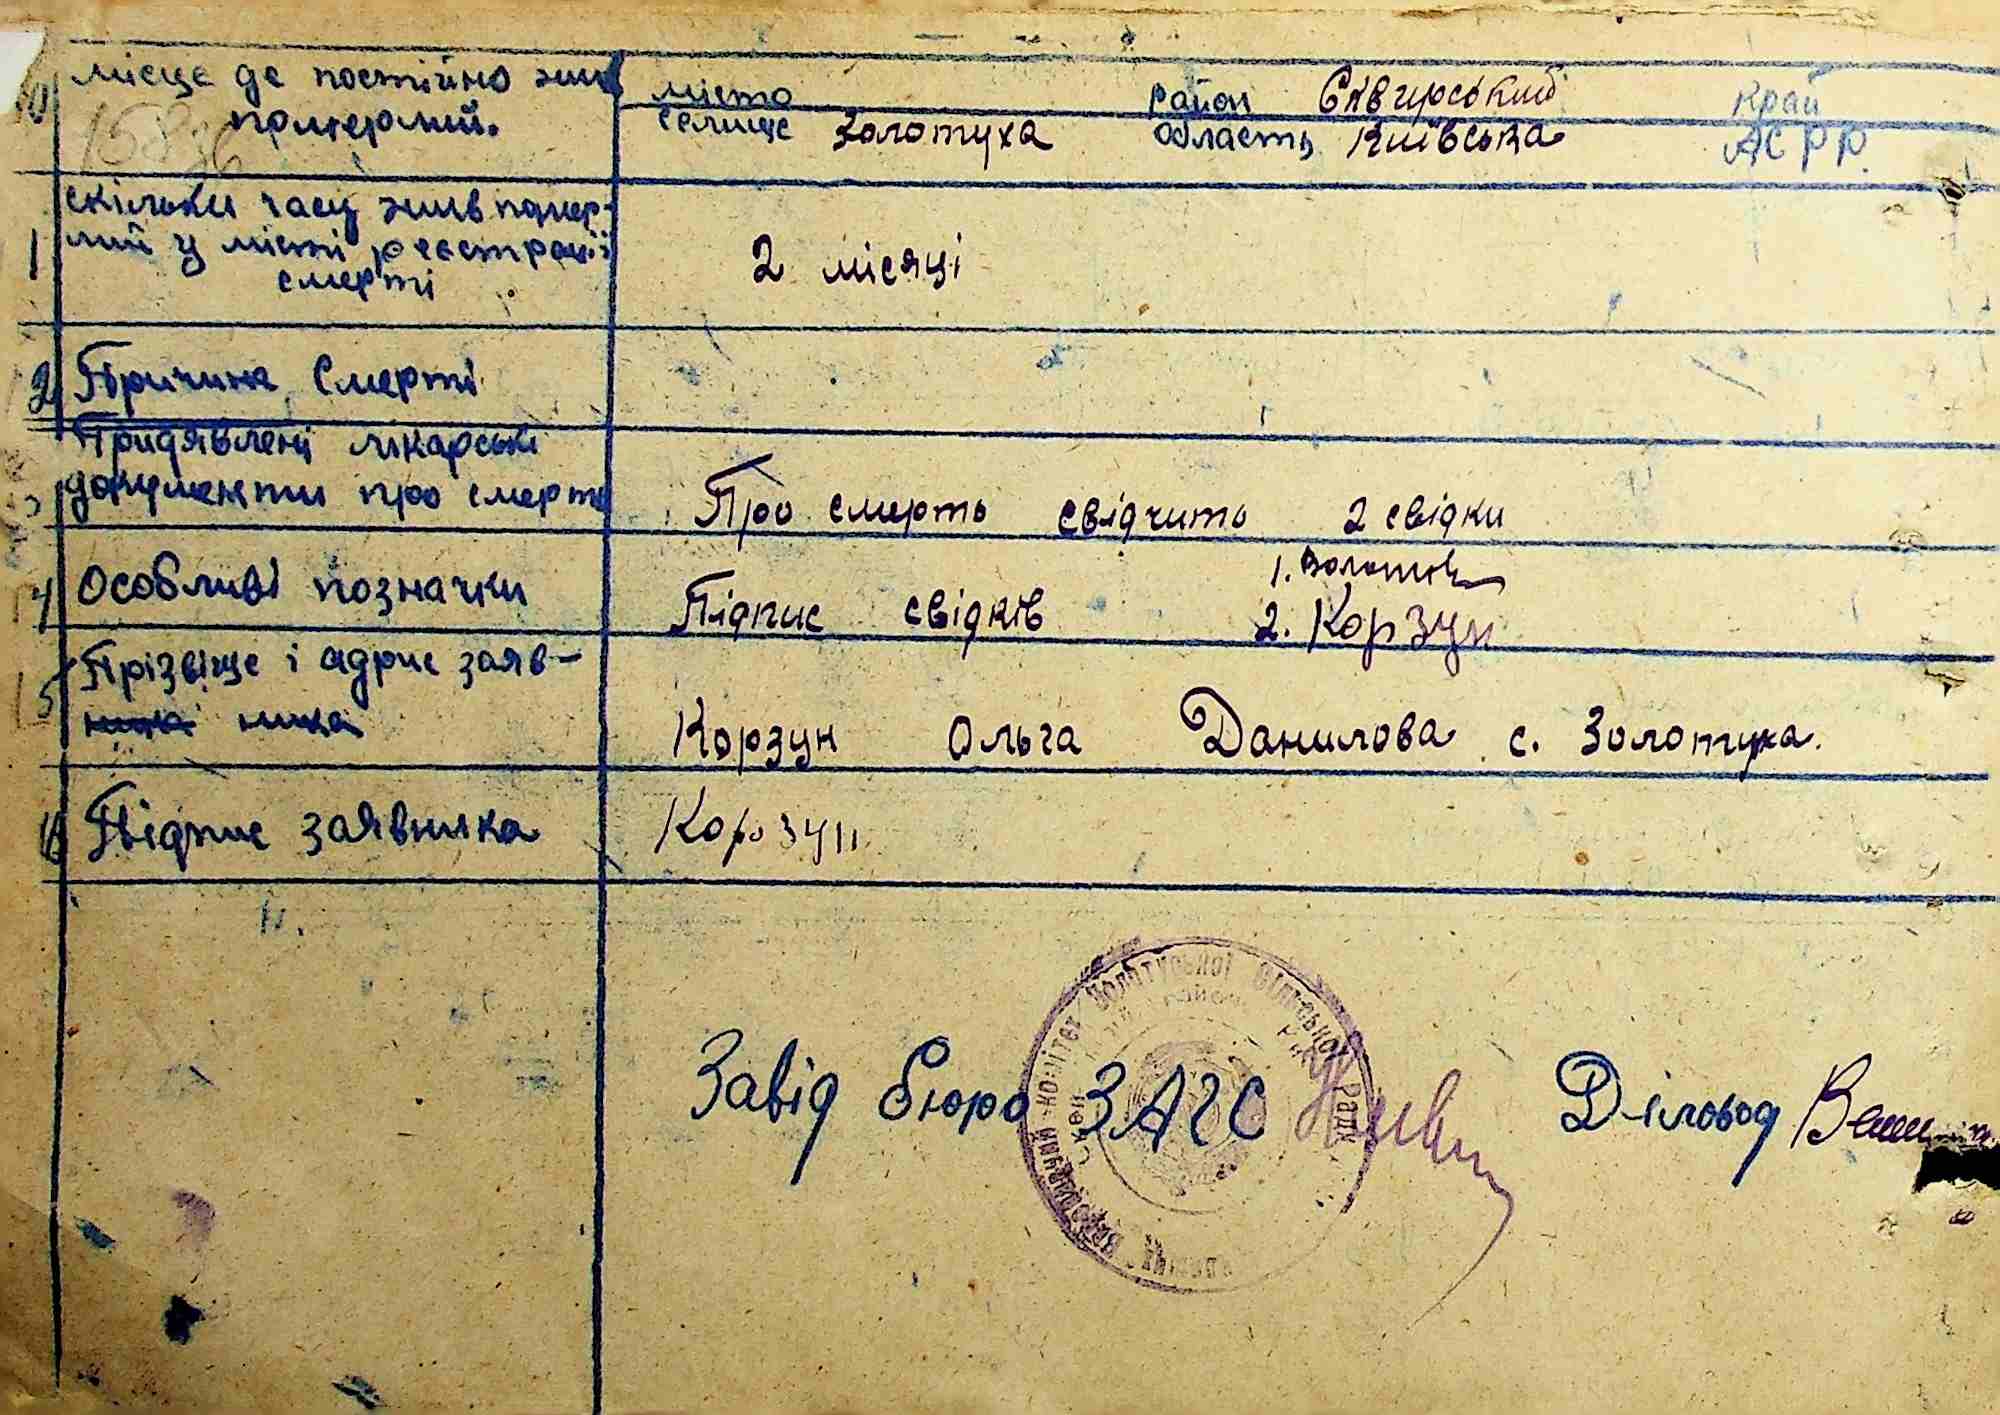 10 місце де постійно жив
померлий.
місто район Сквирський край
селище Золотуха область Київська АСРР.
1 скільки часу жив помер-
лий у місті реєстрації
смерті
2 місяці
2 Причина Смерті
3 Придявлені лікарські
документи про смерть
Про смерть свідчить 2 свідки
4 Особливі позначки
Підпис свідків 1.
2. Корзун
5 Прізвіще і адрис заяв-
ника
Корзун Ольга Данилова с. Золотуха.
16 Підпис заявника Корзун
Завід бюро ЗАГС Діловод
Виконавчий комітет Золотуської сільської Ради